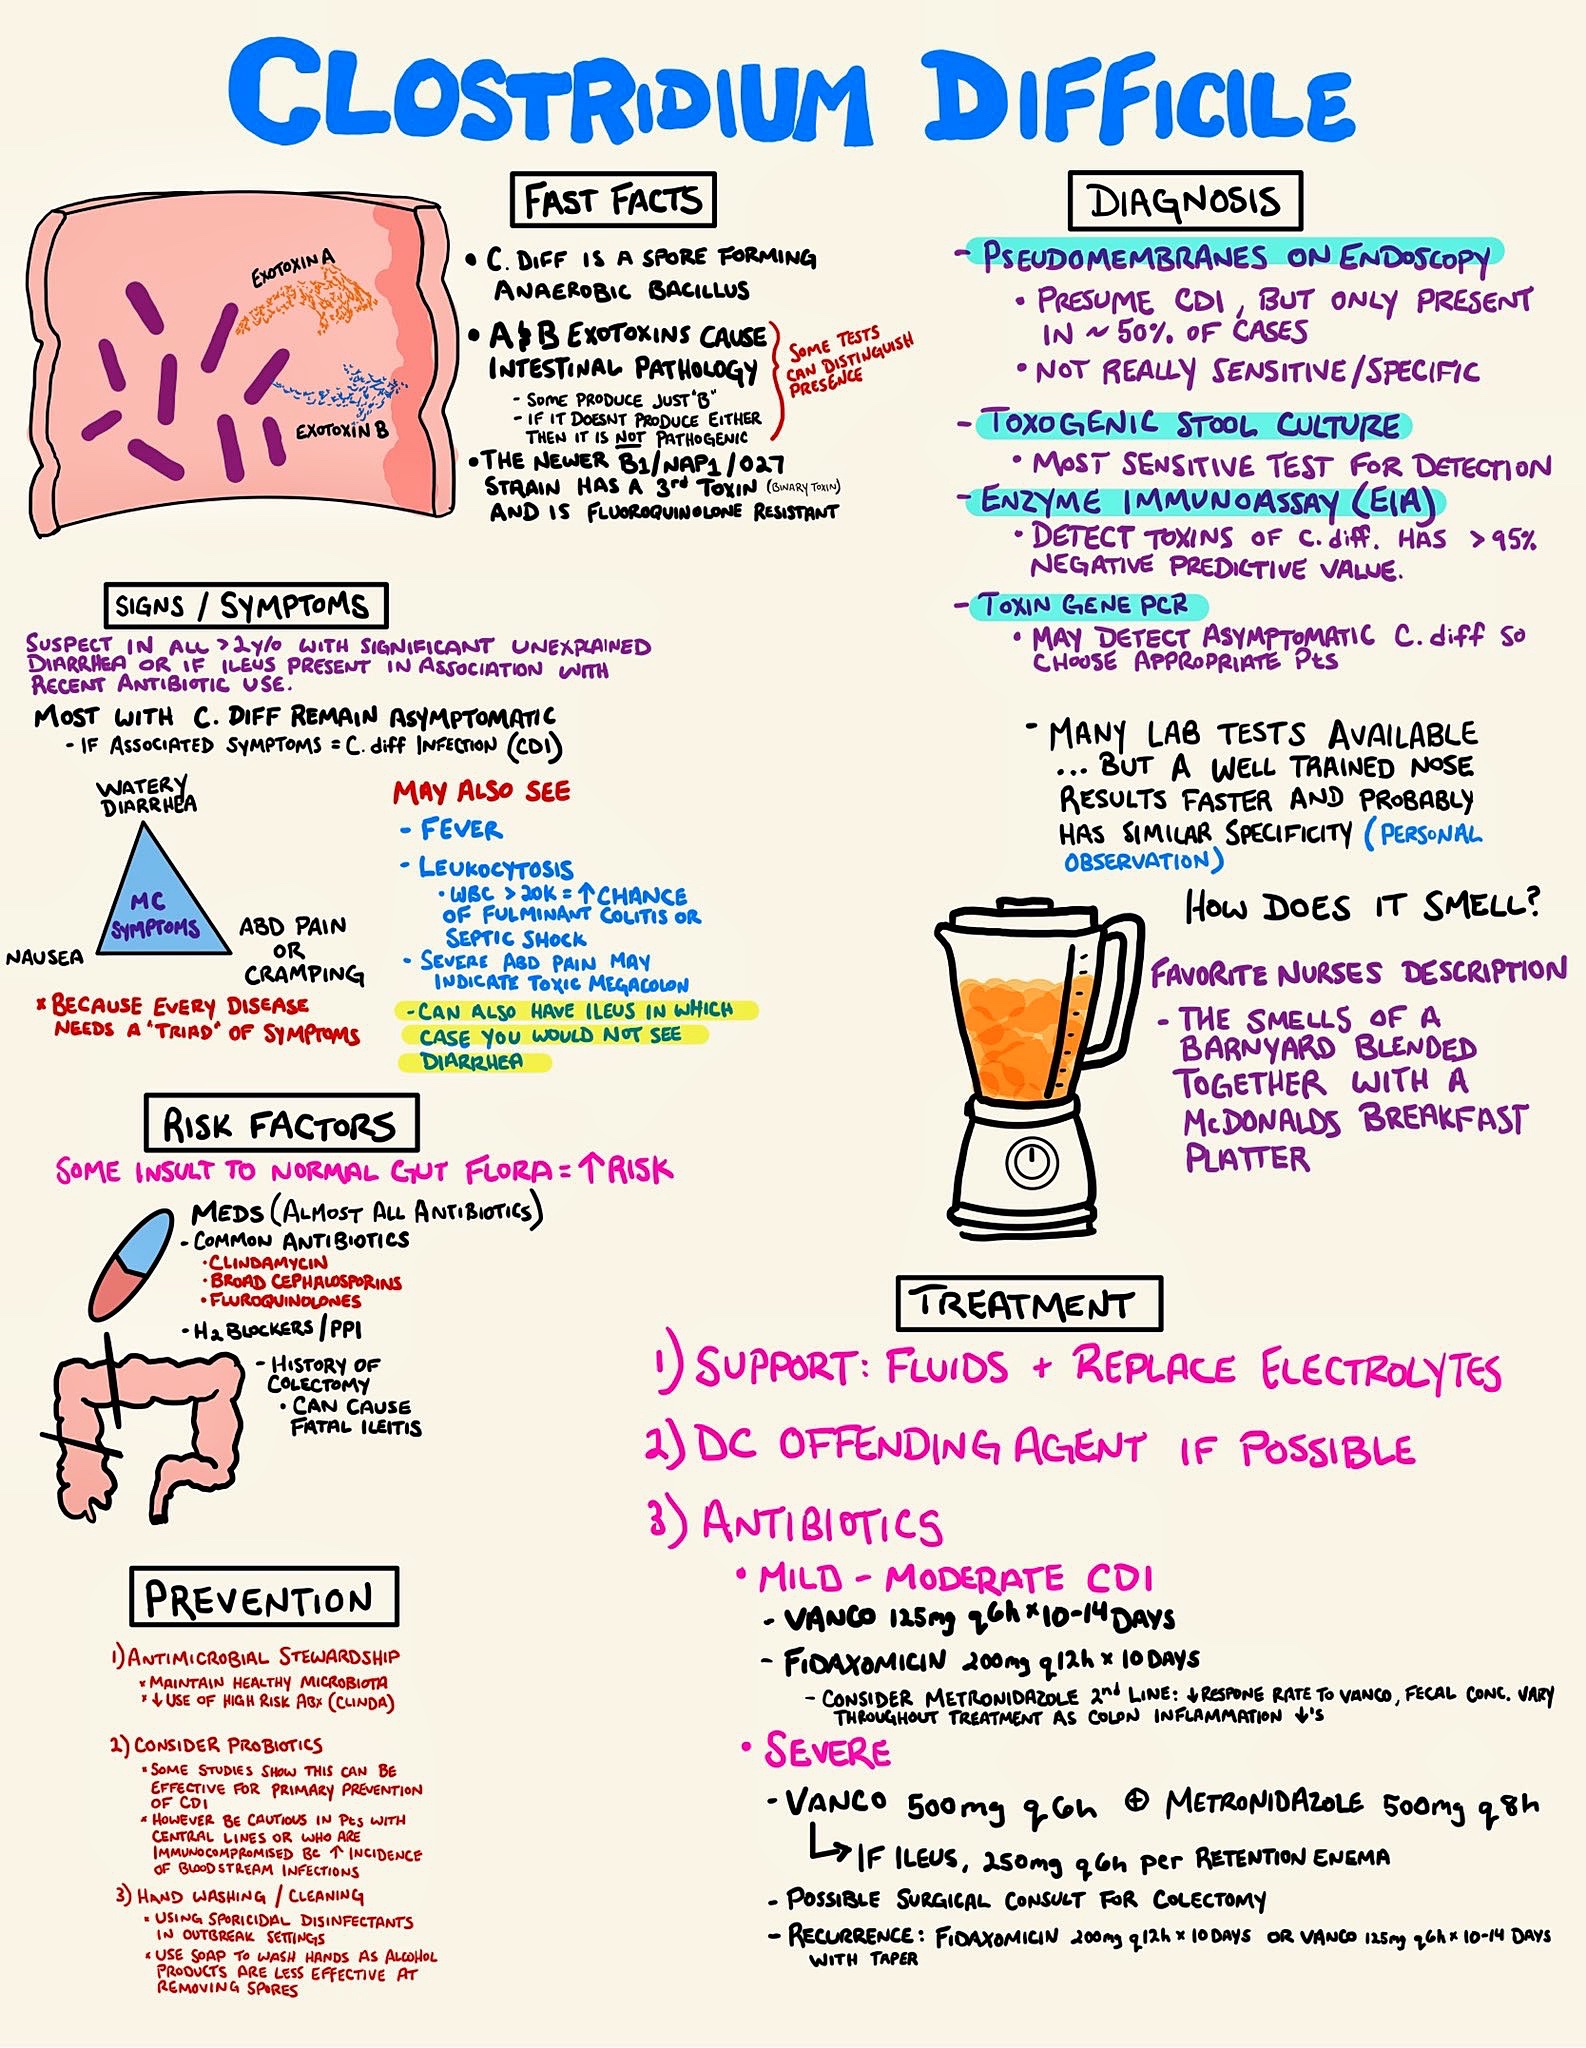 CLOSTRIDIUM DIFFICILE
EXOTOXIN A
EXOTOXIN B
FAST FACTS
• C. DIFF IS A SPORE FORMING
ANAEROBIC BACILLUS
• A & B EXOTOXINS CAUSE
INTESTINAL PATHOLOGY
- SOME PRODUCE JUST "B"
- IF IT DOESNT PRODUCE EITHER
THEN IT IS NOT PATHOGENIC
SOME TESTS
CAN DISTINGUISH
PRESENCE
• THE NEWER B1/NAP1/027
STRAIN HAS A 3rd TOXIN (BINARY TOXIN)
AND IS FLUOROQUINOLONE RESISTANT
DIAGNOSIS
- PSEUDOMEMBRANES ON ENDOSCOPY
• PRESUME CDI, BUT ONLY PRESENT
IN ~ 50% OF CASES
• NOT REALLY SENSITIVE/SPECIFIC
- TOXOGENIC STOOL CULTURE
• MOST SENSITIVE TEST FOR DETECTION
- ENZYME IMMUNOASSAY (EIA)
• DETECT TOXINS OF C. diff. HAS > 95%
NEGATIVE PREDICTIVE VALUE.
- TOXIN GENE PCR
• MAY DETECT ASYMPTOMATIC C. diff SO
CHOOSE APPROPRIATE Pts
- MANY LAB TESTS AVAILABLE
... BUT A WELL TRAINED NOSE
RESULTS FASTER AND PROBABLY
HAS SIMILAR SPECIFICITY (PERSONAL
OBSERVATION)
HOW DOES IT SMELL?
FAVORITE NURSES DESCRIPTION
- THE SMELLS OF A
BARNYARD BLENDED
TOGETHER WITH A
McDONALDS BREAKFAST
PLATTER
SIGNS / SYMPTOMS
SUSPECT IN ALL >2y/o WITH SIGNIFICANT UNEXPLAINED
DIARRHEA OR IF ILEUS PRESENT IN ASSOCIATION WITH
RECENT ANTIBIOTIC USE.
MOST WITH C. DIFF REMAIN ASYMPTOMATIC
- IF ASSOCIATED SYMPTOMS = C. diff INFECTION (CDI)
WATERY
DIARRHEA
MC
SYMPTOMS
NAUSEA
ABD PAIN
OR
CRAMPING
* BECAUSE EVERY DISEASE
NEEDS A "TRIAD" OF SYMPTOMS
MAY ALSO SEE
- FEVER
- LEUKOCYTOSIS
• WBC > 20K = ↑ CHANCE
OF FULMINANT COLITIS OR
SEPTIC SHOCK
- SEVERE ABD PAIN MAY
INDICATE TOXIC MEGACOLON
- CAN ALSO HAVE ILEUS IN WHICH
CASE YOU WOULD NOT SEE
DIARRHEA
RISK FACTORS
SOME INSULT TO NORMAL GUT FLORA = ↑ RISK
MEDS (ALMOST ALL ANTIBIOTICS)
- COMMON ANTIBIOTICS
• CLINDAMYCIN
• BROAD CEPHALOSPORINS
• FLUROQUINOLONES
- H2 BLOCKERS / PPI
- HISTORY OF
COLECTOMY
• CAN CAUSE
FATAL ILEITIS
PREVENTION
1) ANTIMICROBIAL STEWARDSHIP
* MAINTAIN HEALTHY MICROBIOTA
* ↓ USE OF HIGH RISK ABX (CLINDA)
2) CONSIDER PROBIOTICS
* SOME STUDIES SHOW THIS CAN BE
EFFECTIVE FOR PRIMARY PREVENTION
OF CDI
* HOWEVER BE CAUTIOUS IN Pts WITH
CENTRAL LINES OR WHO ARE
IMMUNOCOMPROMISED BC ↑ INCIDENCE
OF BLOODSTREAM INFECTIONS
3) HAND WASHING / CLEANING
* USING SPORICIDAL DISINFECTANTS
IN OUTBREAK SETTINGS
* USE SOAP TO WASH HANDS AS ALCOHOL
PRODUCTS ARE LESS EFFECTIVE AT
REMOVING SPORES
TREATMENT
1) SUPPORT: FLUIDS + REPLACE ELECTROLYTES
2) DC OFFENDING AGENT IF POSSIBLE
3) ANTIBIOTICS
• MILD - MODERATE CDI
- VANCO 125mg q6h × 10-14 DAYS
- FIDAXOMICIN 200mg q12h × 10 DAYS
- CONSIDER METRONIDAZOLE 2nd LINE: ↓ RESPONE RATE TO VANCO, FECAL CONC. VARY
THROUGHOUT TREATMENT AS COLON INFLAMMATION ↓'S
• SEVERE
- VANCO 500mg q6h ⊕ METRONIDAZOLE 500mg q8h
↳ IF ILEUS, 250mg q6h per RETENTION ENEMA
- POSSIBLE SURGICAL CONSULT FOR COLECTOMY
- RECURRENCE: FIDAXOMICIN 200mg q12h × 10 DAYS OR VANCO 125mg q6h × 10-14 DAYS
WITH TAPER